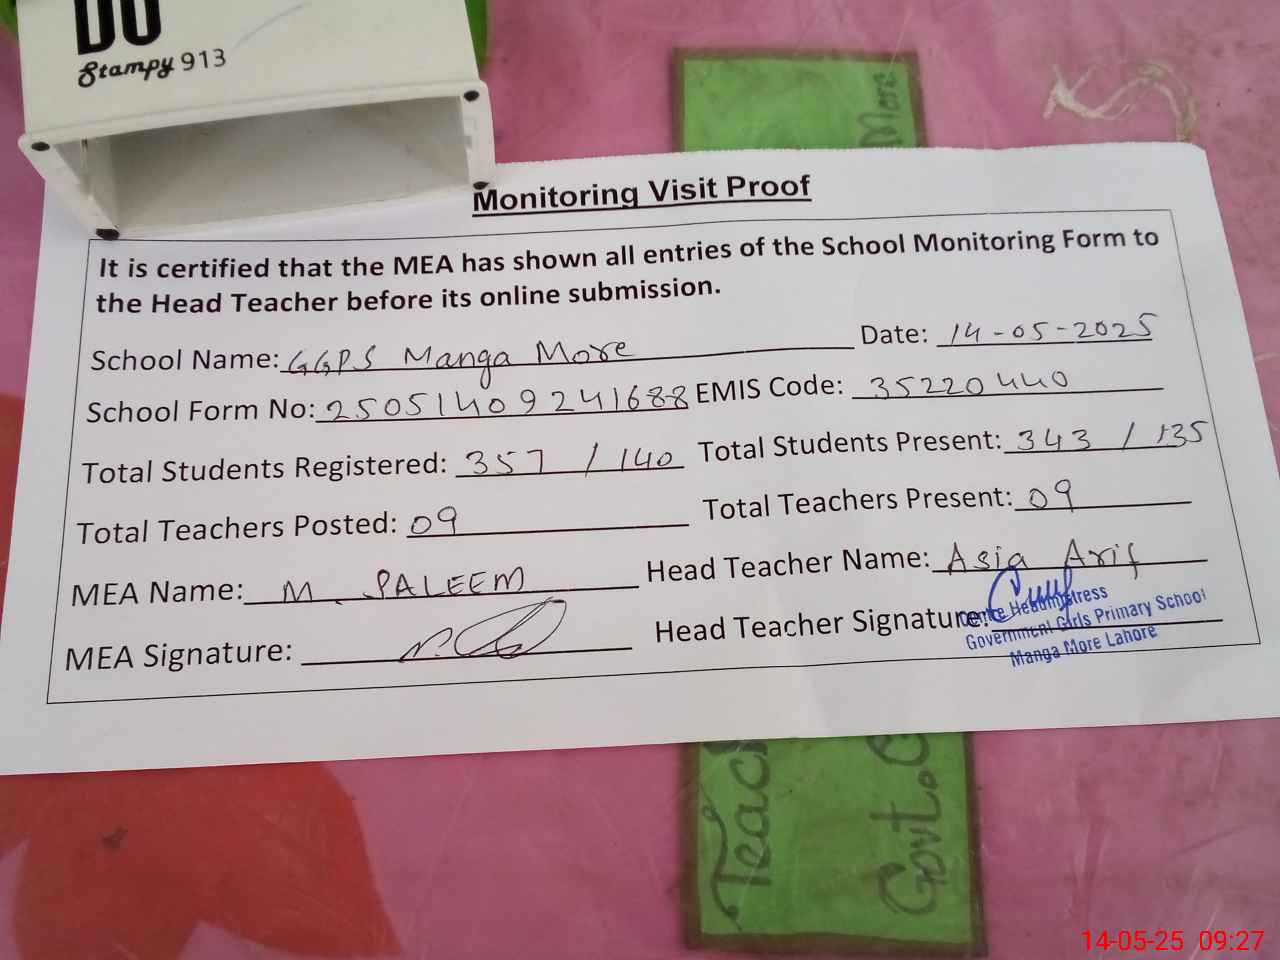 DU
Stampy 913
More
Monitoring Visit Proof
It is certified that the MEA has shown all entries of the School Monitoring Form to
the Head Teacher before its online submission.
School Name: GGPS Manga More Date: 14-05-2025
School Form No: 250514092241688 EMIS Code: 35220440
Total Students Registered: 357 / 140 Total Students Present: 343 / 135
Total Teachers Posted: 09 Total Teachers Present: 09
MEA Name: M. SALEEM Head Teacher Name: Asia Arif
MEA Signature: Head Teacher Signature:
Headmistress
Government Girls Primary School
Manga More Lahore
Teach
Govt. G
14-05-25 09:27